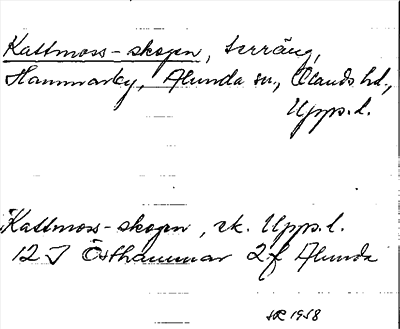 Kattmoss-skogen, terräng,
Hammarby, Alunda sn, Olands hd.,
Upps. l.
Kattmoss-skogen, sk. Upps. l.
12 J Östhammar 2f Alunda
1958